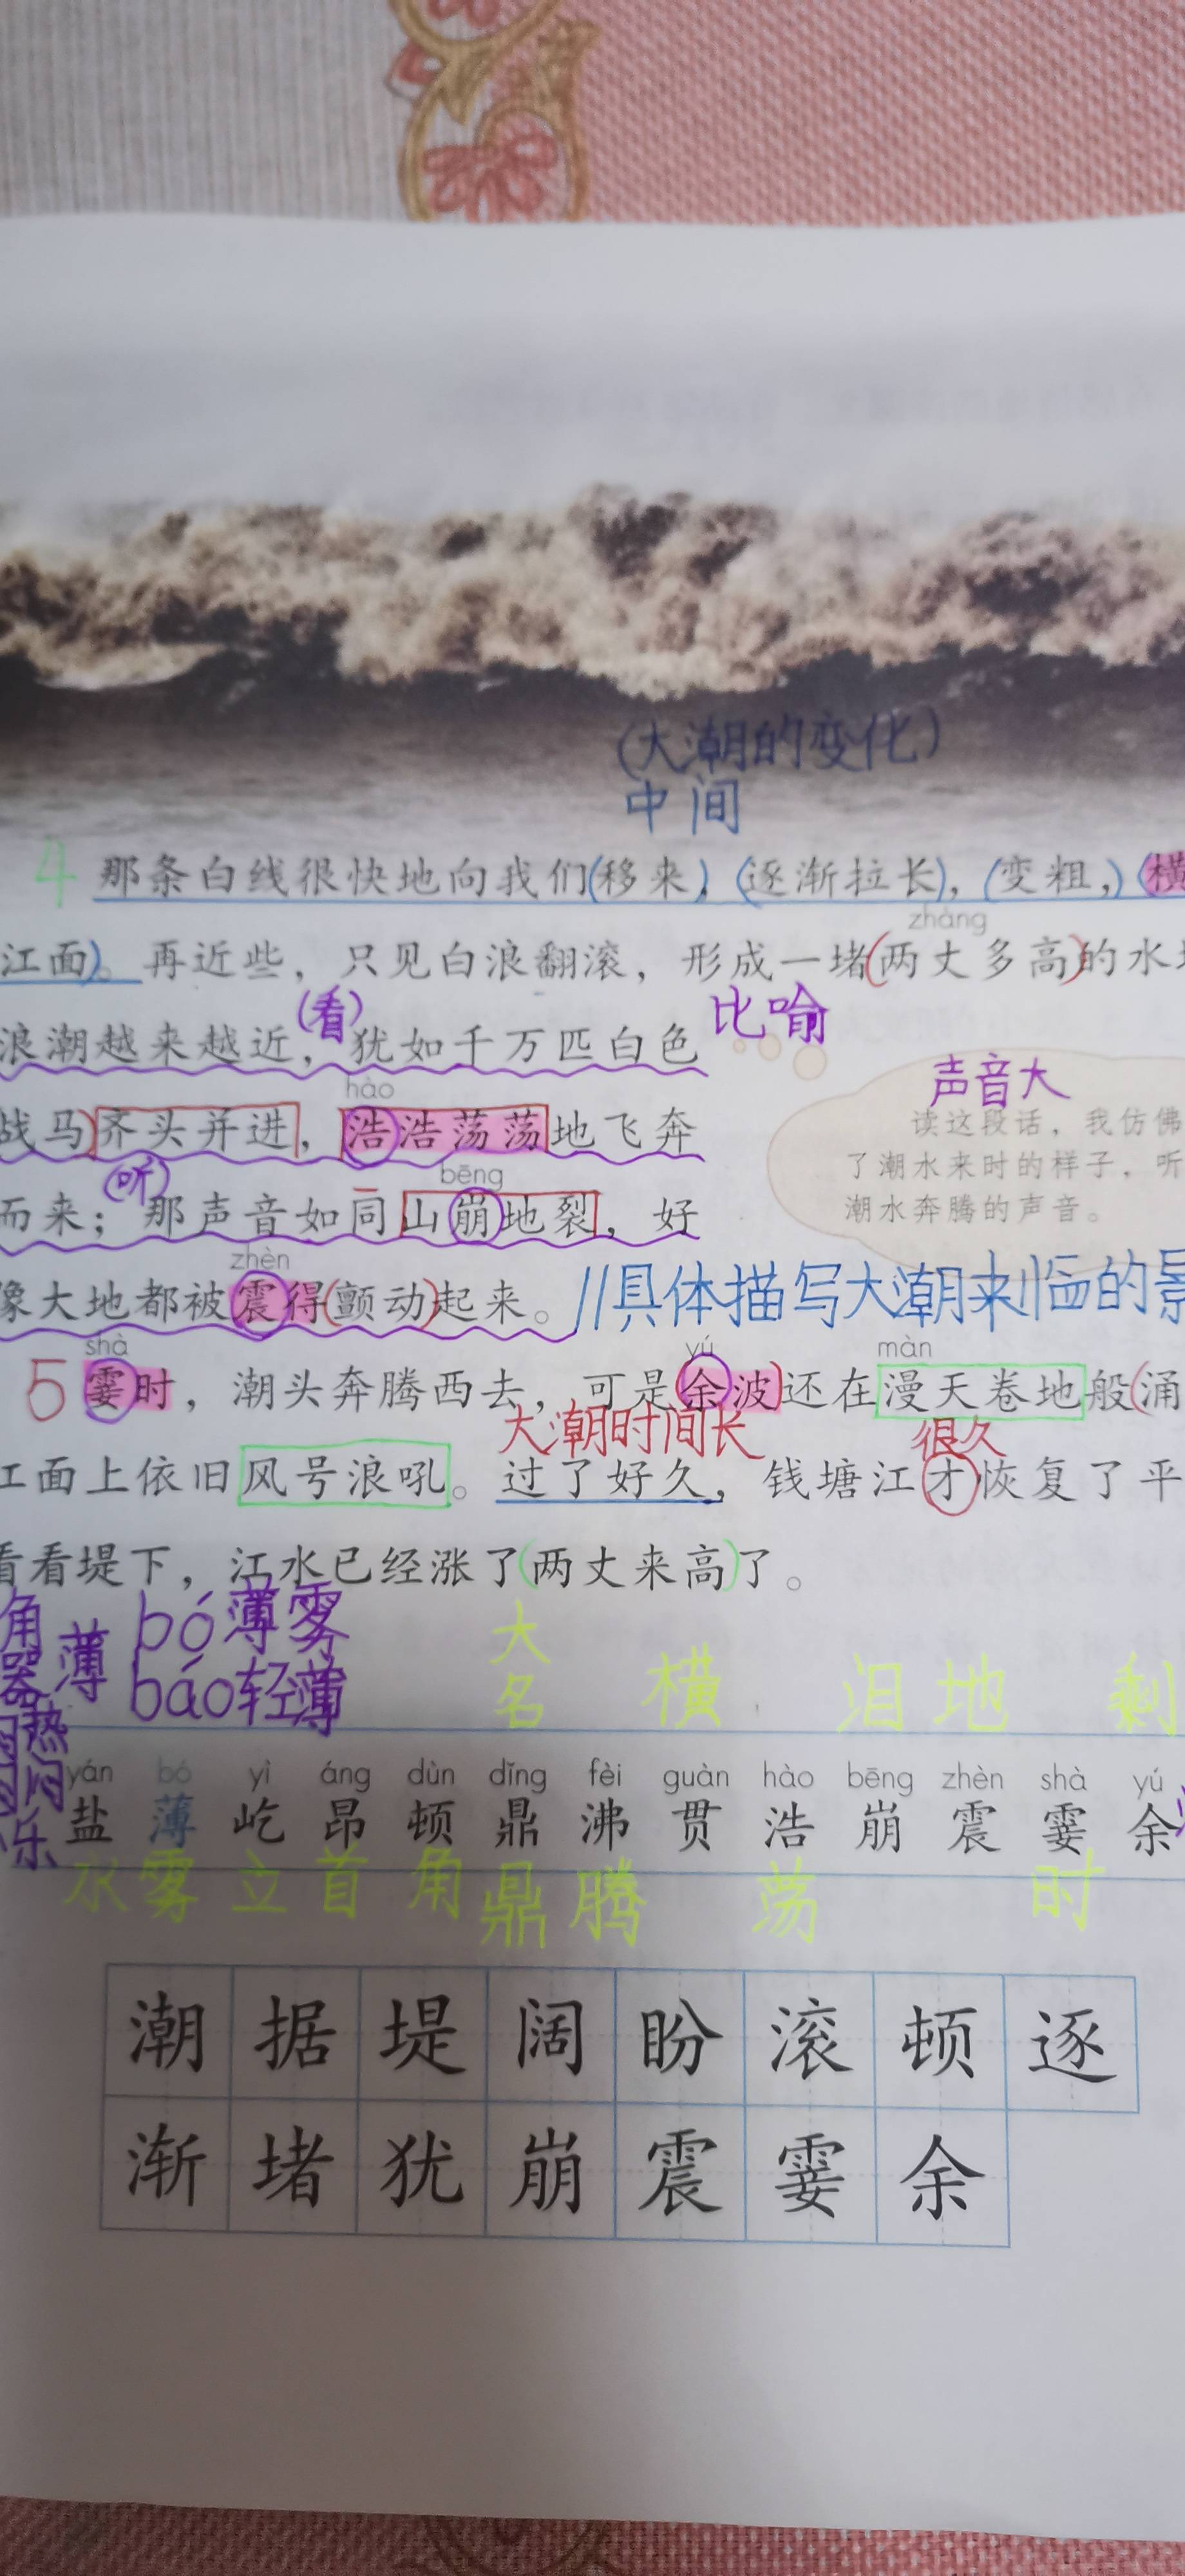 (大潮的变化)
中间
4 那条白线很快地向我们(移来),(逐渐拉长),(变粗,)(横
zhàng
江面)。再近些，只见白浪翻滚，形成一堵(两丈多高)的水
(看) 比喻
浪潮越来越近，犹如千万匹白色
hào
战马)齐头并进，浩浩荡荡地飞奔
(听) bēng
而来；那声音如同山崩地裂，好
声音大
读这段话，我仿佛
了潮水来时的样子，听
潮水奔腾的声音。
zhèn
像大地都被震得(颤动)起来。//具体描写大潮来临的景
shà yú màn
5 霎时，潮头奔腾西去，可是余波)还在漫天卷地般(涌
大潮时间长 很久
江面上依旧风号浪吼。过了好久，钱塘江才恢复了平
看看堤下，江水已经涨了(两丈来高)了。
角 薄 bó薄雾
器 báo轻薄
热
闷
乐
大
名 横 泪 地 剩
yán bó yì áng dùn dǐng fèi guàn hào bēng zhèn shà yú
盐 薄 屹 昂 顿 鼎 沸 贯 浩 崩 震 霎 余
水 雾 立 首 角 鼎 腾 荡 时
潮 据 堤 阔 盼 滚 顿 逐
渐 堵 犹 崩 震 霎 余